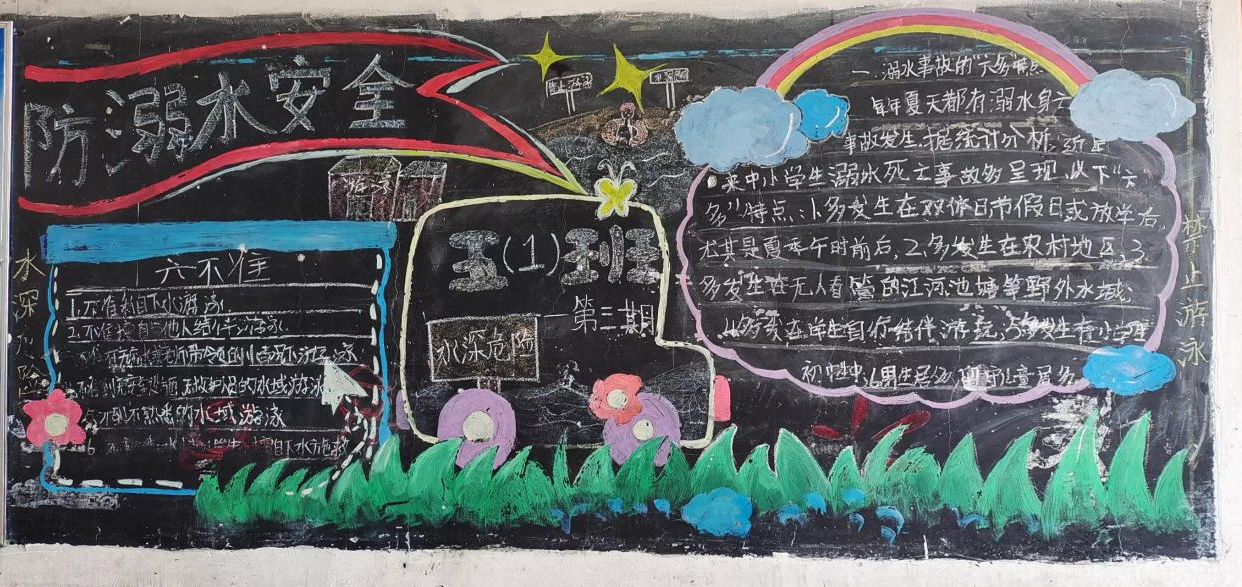 防溺水安全
游泳
水深危险
六不准
1.不准私自下水游泳
2.不准擅自与他人结伴游泳
的水域游泳
5.不到不熟悉的水域游泳
6
自下水施救
五(1)班
第三期
水深危险
一.溺水事故的“六多”特点
每年夏天都有溺水身亡
事故发生.据统计分析,近年
来中小学生溺水死亡事故多呈现以下“六
多”特点:1.多发生在双休日节假日或放学后,
尤其是夏季午时前后,2.多发生在农村地区,3.
多发生在无人看管的江河池塘等野外水域
4.多发在学生自行结伴游玩,5.多发生在小学生
初中生中,6.男生居多,留守儿童居多
禁止游泳